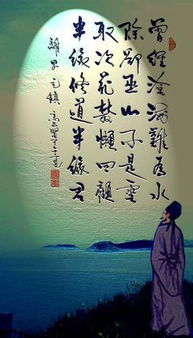 曾經滄海難為水
除卻巫山不是雲
取次花叢懶回顧
半緣修道半緣君
離思 元稹